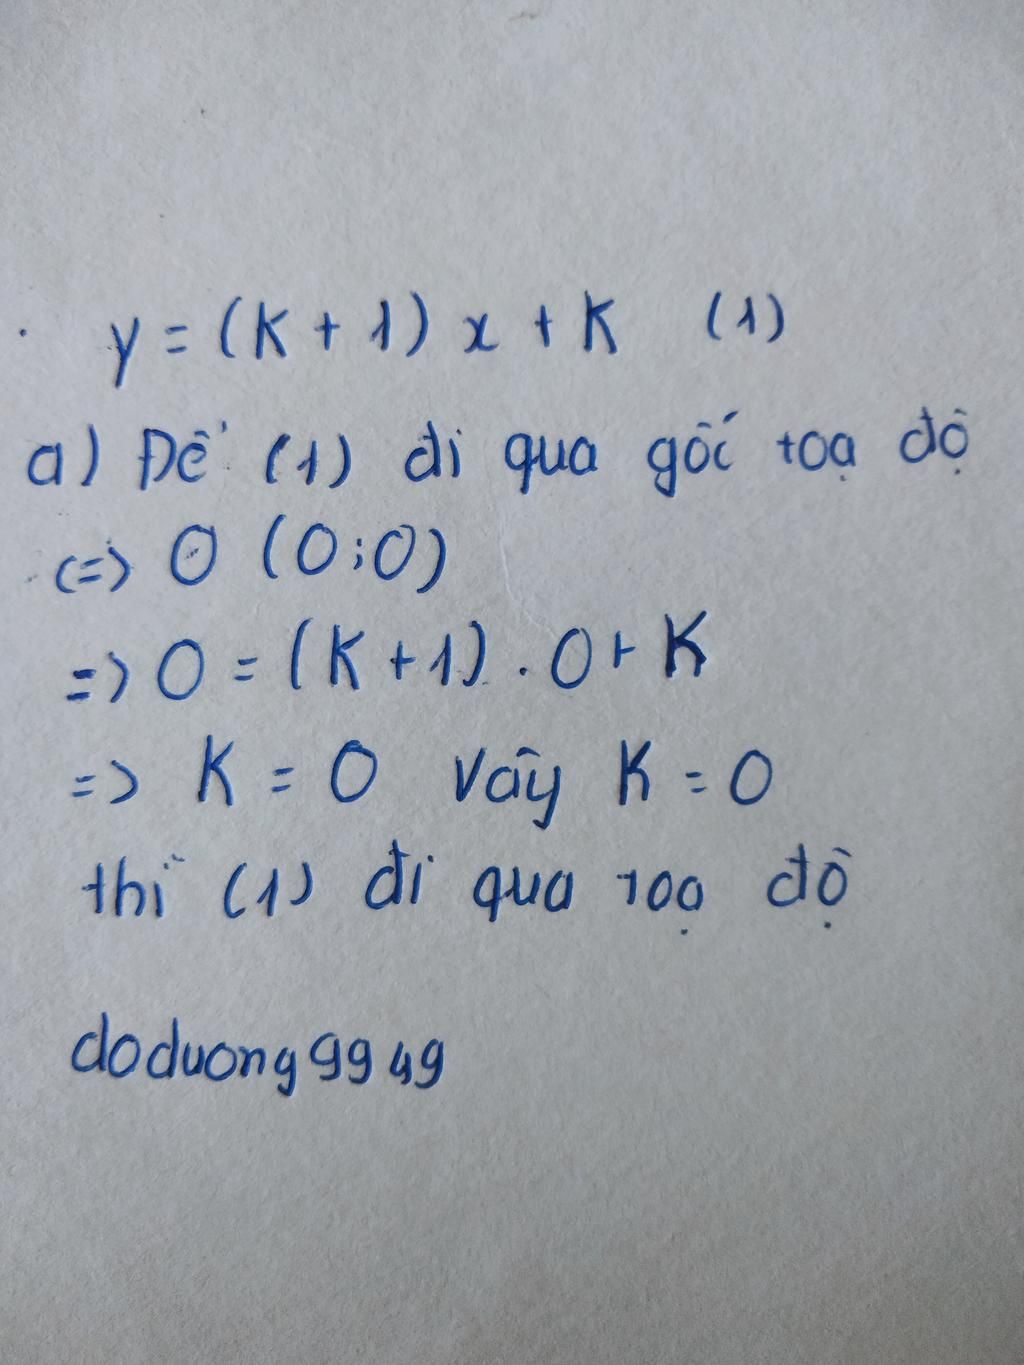 y = (K + 1) x + K (1)
a) Để (1) đi qua gốc toạ độ
<=> O (0;0)
=> 0 = (K + 1) . 0 + K
=> K = 0 Vây K = 0
thì (1) đi qua toạ độ
doduong9949